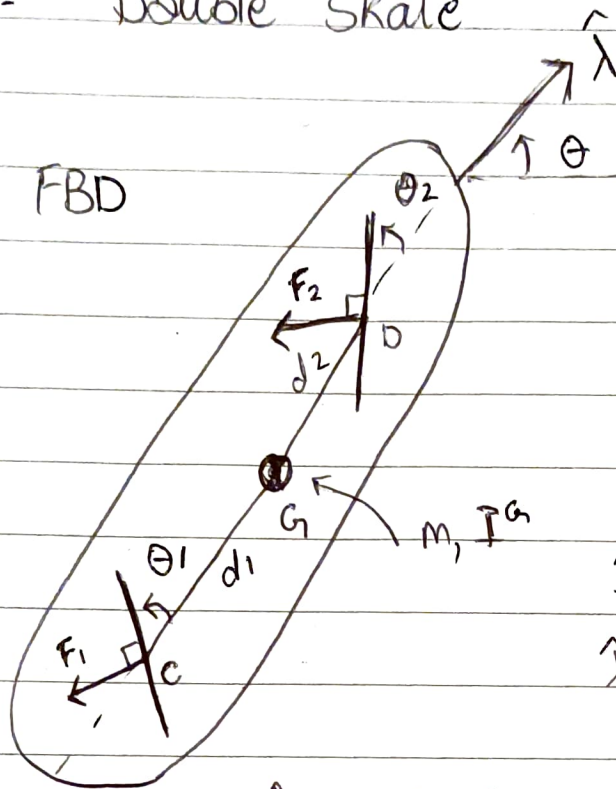 Double Skate
λ̂
θ
FBD
θ2
F2
D
d2
G
m, I^G
θ1
d1
F1
C